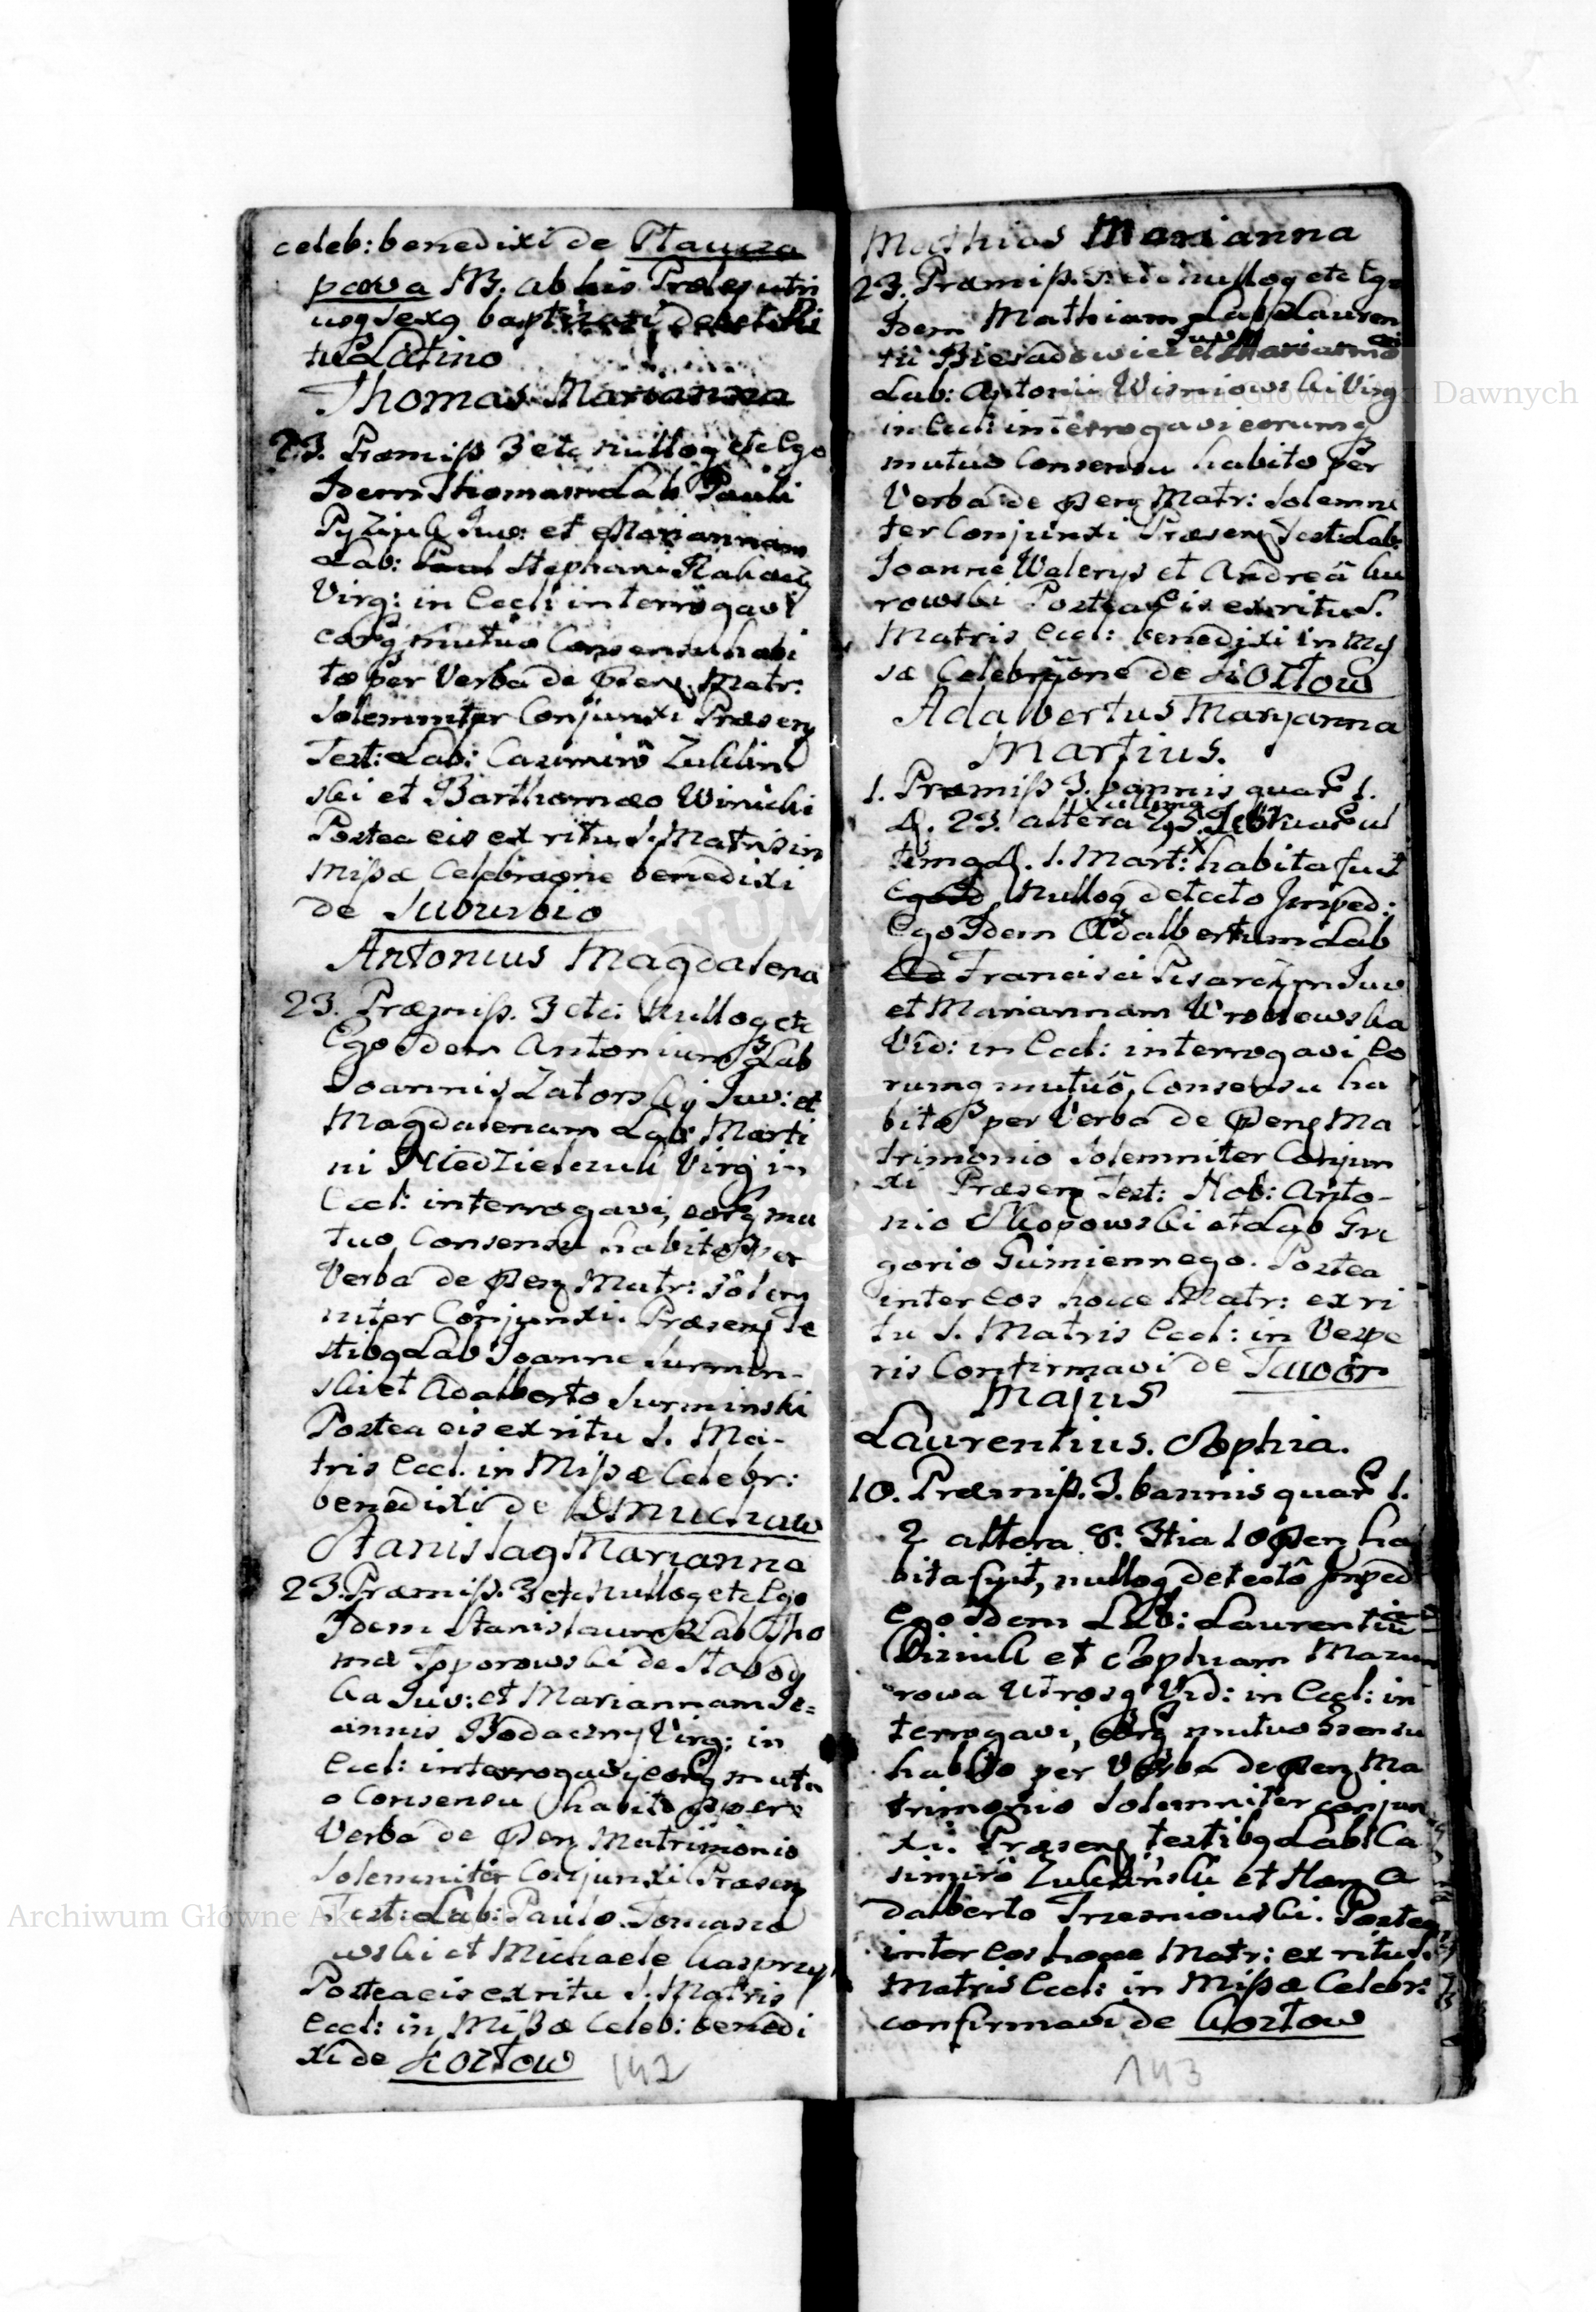 celeb: benedixi de Stawcza
parva NB. ab his Proles utri
usq Sexq baptizari debet Ri
tu Latino
Thomas Marianna
23. Præmiß 3 etc nulloq etc Ego
Idem Thomam Lab Pauli
Juv: et Mariannam
Lab: Stephani
Virg: in Eccl: interrogavi
eorq mutuo Consensu habi
to per Verba de Præns Matr:
Solemniter Conjunxi Præsens
Test: Lab: Casimirô Zuklin
ski et Barthomæo Winicki
Postea eis ex ritu S. Matris in
Missæ Celebraone benedixi
de Suburbio
Antonius Magdalena
23. Præmiß. 3 etc: Nulloq etc
Ego Idem Antonium Lab
Joannis Zatorskij Juv: et
Magdalenam Lab Marti
ni Niedzielczuk Virg in
Eccl: interrogavi, eorq mu
tuo Consensu habito per
Verba de Præns Matr: Solem
niter Conjunxi. Præsens Te
stibq Lab Joanne Surmin-
ski et Adalberto Surminski
Postea eis ex ritu S. Ma-
tris Eccl. in Missæ Celebr:
benedixi de
Stanislaq Marianna
23. Præmiß. 3 etc Nulloq etc Ego
Idem Stanislaum Lab Tho
mæ Toporowski de
ka Juv: et Mariannam Jo=
annis Bodaczny Virg: in
Eccl: interrogavi eorq mutu
o Consensu habito per
Verba de Præns Matrimonio
Solemniter Conjunxi Præsens
Test: Lab: Paulo Tomasze
wski et Michaele Kasprzyk
Postea eis ex ritu S. Matris
Eccl: in Missæ Celeb: benedi
xi de Kostow
142
Mathias Marianna
23. Præmiß. 3. etc nulloq etc Ego
Idem Mathiam Lab Lauren
tii Biesadowicz Juv et Marianna
Lab: Antonii Wisniowski Virg
in Eccl: interrogavi eorumq
mutuo Consensu habito per
Verba de Præns Matr: Solemni
ter Conjunxi Præsens Test: Lab:
Joanne Walerys et Andreâ Ku
rowski Postea eis ex ritu S.
Matris Eccl: benedixi in Mis
sæ Celebrône de Kostow
Adalbertus Maryanna
Martius.
1. Præmiß 3. bannis quar 1.
d. 23. altera 25 Februar ul
tima d. 1. Mart: habita fuit
Nulloq detecto Imped:
Ego Idem Adalbertum Lab
Francisci Pisarczyn Juv
et Mariannam Wronowska
Vid: in Eccl: interrogavi eo
rumq mutuô Consensu ha
bito per Verba de Præns Ma
trimonio Solemniter Conjun
xi Præsens Test: Nob: Anto-
nio Skopowski et Lab Gre
gorio Gumiennego. Postea
inter eos hocce Matr: ex ri
tu S. Matris Eccl: in Vespe
ris Confirmavi de Jawor
Majus
Laurentius. Sophia.
10. Præmiß. 3. bannis quar 1.
2 altera 8. 3tia 10 Præns ha
bita fuit, nulloq detectô Imped
Ego Idem Lab: Laurentiũ
et Sophiam Mazu
rowa Utrosq Vid: in Eccl: in
terrogavi, eorq mutuo Ssensu
habito per Verba de Præns Ma
trimonio Solemniter conjun
xi. Præsens testibq Lab Ca
simirô Zuklinski et Hon A
dalberto Trzesniowski. Postea
inter eos hocce Matr: ex ritu S.
Matris Eccl: in Missæ Celebr:
confirmavi de Kostow
143
Archiwum Główne Akt Dawnych